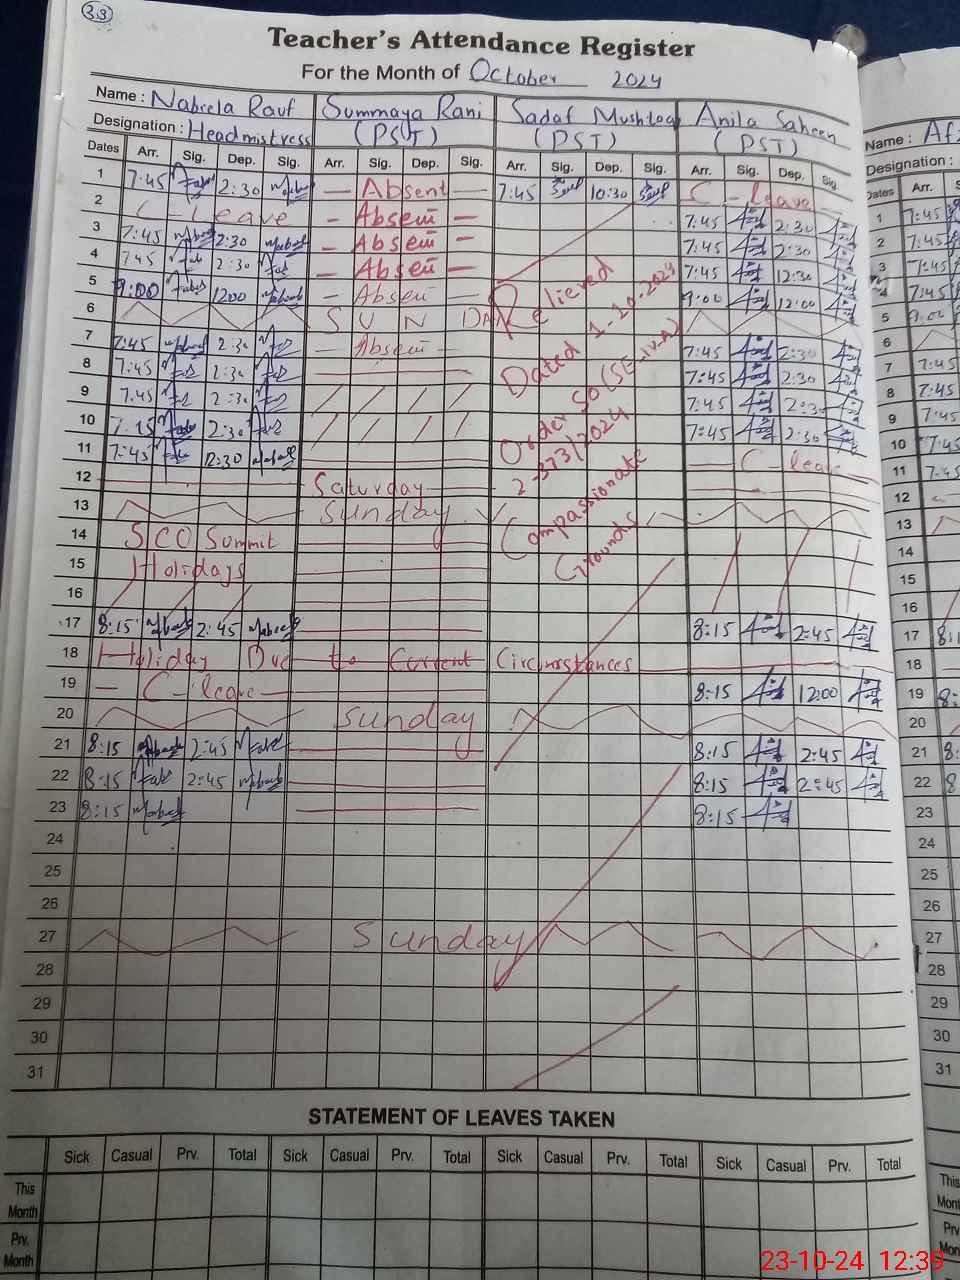 33
Teacher's Attendance Register
For the Month of October 2024
Name : Nabeela Rauf Summaya Rani Sadaf Mushtaq Anila Saheen
Designation : Headmistress (PST) (PST) (PST)
Dates Arr. Sig. Dep. Sig. Arr. Sig. Dep. Sig. Arr. Sig. Dep. Sig. Arr. Sig. Dep. Sig.
1 7:45 2:30 — Absent — 7:45 10:30 C - leave
2 C - Leave - Absent - 7:45 2:30
3 7:45 2:30 - Absent - 7:45 2:30
4 7:45 2:30 - Absent - 7:45 12:30
5 9:00 12:00 - Absent - 9:00 12:00
6 SUNDAY
7 7:45 2:30 - Absent - 7:45 2:30
8 7:45 2:30 7:45 2:30
9 7:45 2:30 7:45 2:30
10 7:45 2:30 7:45 2:30
11 7:45 12:30 — C - leave
12 Saturday
13 Sunday
14 SCO Summit
15 Holidays
16
17 8:15 2:45 8:15 2:45
18 Holiday Due to Current Circumstances
19 — C - leave — 8:15 12:00
20 Sunday
21 8:15 2:45 8:15 2:45
22 8:15 2:45 8:15 2:45
23 8:15 8:15
24
25
26
27 Sunday
28
29
30
31
Relieved
Dated 1-10-2024
Order SO(SE-IV-A)
2-373/2024
Compassionate
Grounds
STATEMENT OF LEAVES TAKEN
Sick Casual Prv. Total Sick Casual Prv. Total Sick Casual Prv. Total Sick Casual Prv. Total
This
Month
Prv.
Month
Name :
Designation :
Dates Arr.
1 7:45
2 7:45
3 7:45
4 7:45
5 9:00
6
7 7:45
8 7:45
9 7:45
10 7:45
11 7:45
12
13
14
15
16
17
18
19
20
21
22
23
24
25
26
27
28
29
30
31
This
Prv
23-10-24 12:39